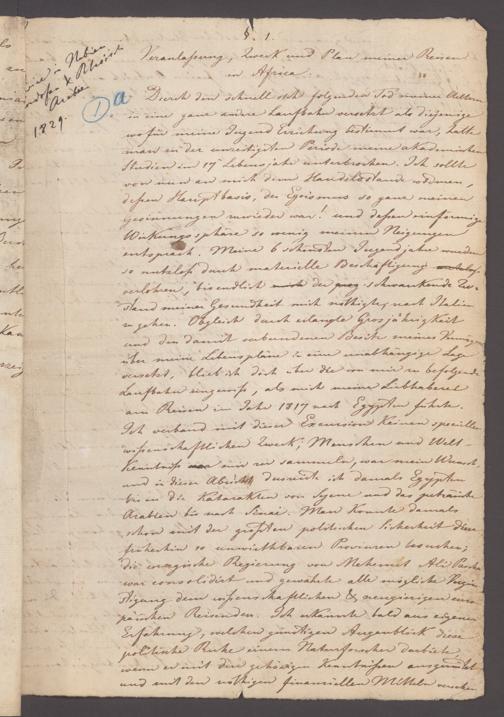 §. 1.
Veranlassung, Zweck und Plan meiner Reisen
in Africa.
Nubien
Arabien
1829.
Da
Durch den schnell sich folgenden Tod meiner Aeltern
in eine ganz andre Laufbahn versetzt als diejenige
wofür meine Jugend Erziehung bestimmt war, hatte
man in der unzeitigsten Periode meine akademischen
Studien im 17 Lebensjahr unterbrochen. Ich sollte
von nun an mich dem Handelsstande widmen,
dessen Hauptbasis, der Egoismus so ganz meinen
Gesinnungen zuwieder war! und dessen einförmige
Wirkungssphäre so wenig meinen Neigungen
entsprach. Meine 6 schönsten Jugendjahre wurden
so nutzlos durch materielle Beschäftigung
verlohren, bis endlich der schwankende Zu-
stand meiner Gesundheit mich nöthigte nach Italien
zu gehen. Obgleich durch erlangte Grosjährigkeit
und den damit verbundenen Besitz meines Vermögens
über meine Lebenspläne in eine unabhängige Lage
versetzt, blieb ich doch über die von mir zu befolgende
Laufbahn ungewiss, als mich meine Liebhaberei
am Reisen im Jahr 1817 nach Egypten führte.
Ich verband mit dieser Excursion keinen speciellen
wissenschaftlichen Zweck; Menschen und Welt-
kenntniss mir zu sammeln, war mein Wunsch,
und in dieser Absicht durchreiste ich damals Egypten
bis an die Katarakten von Syene und das peträische
Arabien bis nach Sinai. Man konnte damals
schon mit der größten politischen Sicherheit diese
früherhin so unwirthbaren Provinzen besuchen;
die energische Regierung von Mehemet Ali Pascha
war consolidirt und gewährte alle mögliche Begün-
stigung dem wissenschaftlichen & neugierigen euro-
päischen Reisenden. Ich erkannte bald aus eigener
Erfahrung, welchen günstigen Augenblick diese
politische Ruhe einem Naturforscher darbiete,
wenn er mit den gehörigen Kenntnissen ausgerüstet
und mit den nöthigen finanziellen Mitteln versehen